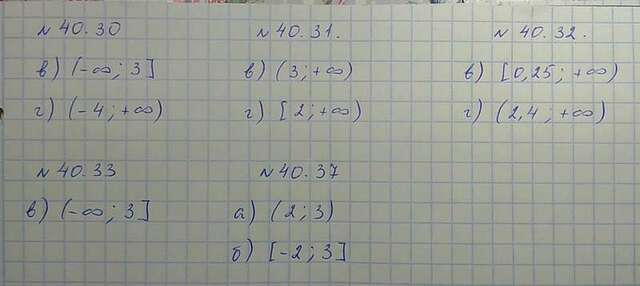 № 40.30
в) (-∞; 3]
г) (-4; +∞)
№ 40.31.
в) (3; +∞)
г) [2; +∞)
№ 40.32.
в) [0,25; +∞)
г) (2,4; +∞)
№ 40.33
в) (-∞; 3]
№ 40.37
а) (2; 3)
б) [-2; 3]